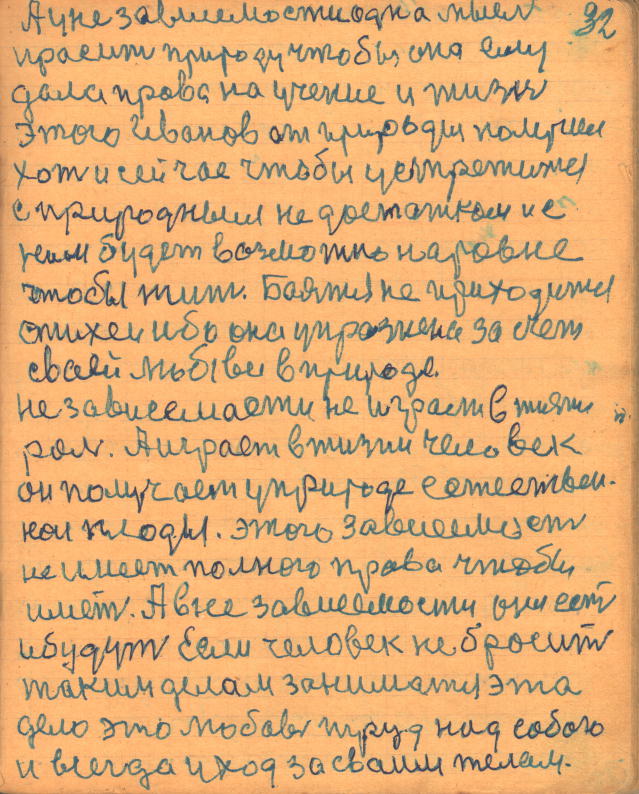 А у не зависемости одна мысл 32
прасит природу чтобы она ему
дала права на учение и жизн
этого Иванов от природы получил
хот и сейчас чтобы
с природным не достатком и с
ним будет возможно наровне
чтобы жит. Баятся не приходится
стихеи ибо она за счет
своей любви в природе.
не зависемасти не играет в жизни
рол. А играет в жизни человек
он получает у природе естествен-
ной плоды. этого зависемост
не имеет полного права чтобы
имет. А в не зависемости они ест
и будут если человек не бросит
таким делам заниматся эта
дело это любов труд над собою
и всегда уход за сваим телам.